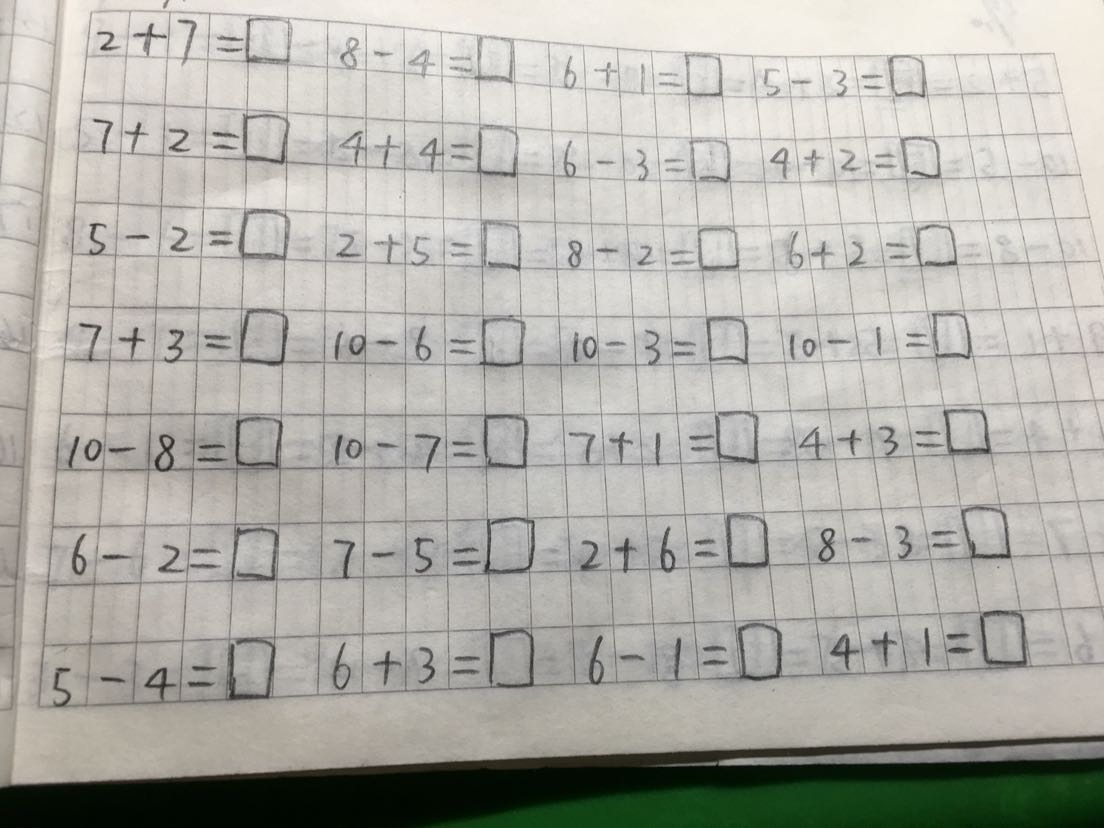 2+7=□ 8-4=□ 6+1=□ 5-3=□
7+2=□ 4+4=□ 6-3=□ 4+2=□
5-2=□ 2+5=□ 8-2=□ 6+2=□
7+3=□ 10-6=□ 10-3=□ 10-1=□
10-8=□ 10-7=□ 7+1=□ 4+3=□
6-2=□ 7-5=□ 2+6=□ 8-3=□
5-4=□ 6+3=□ 6-1=□ 4+1=□